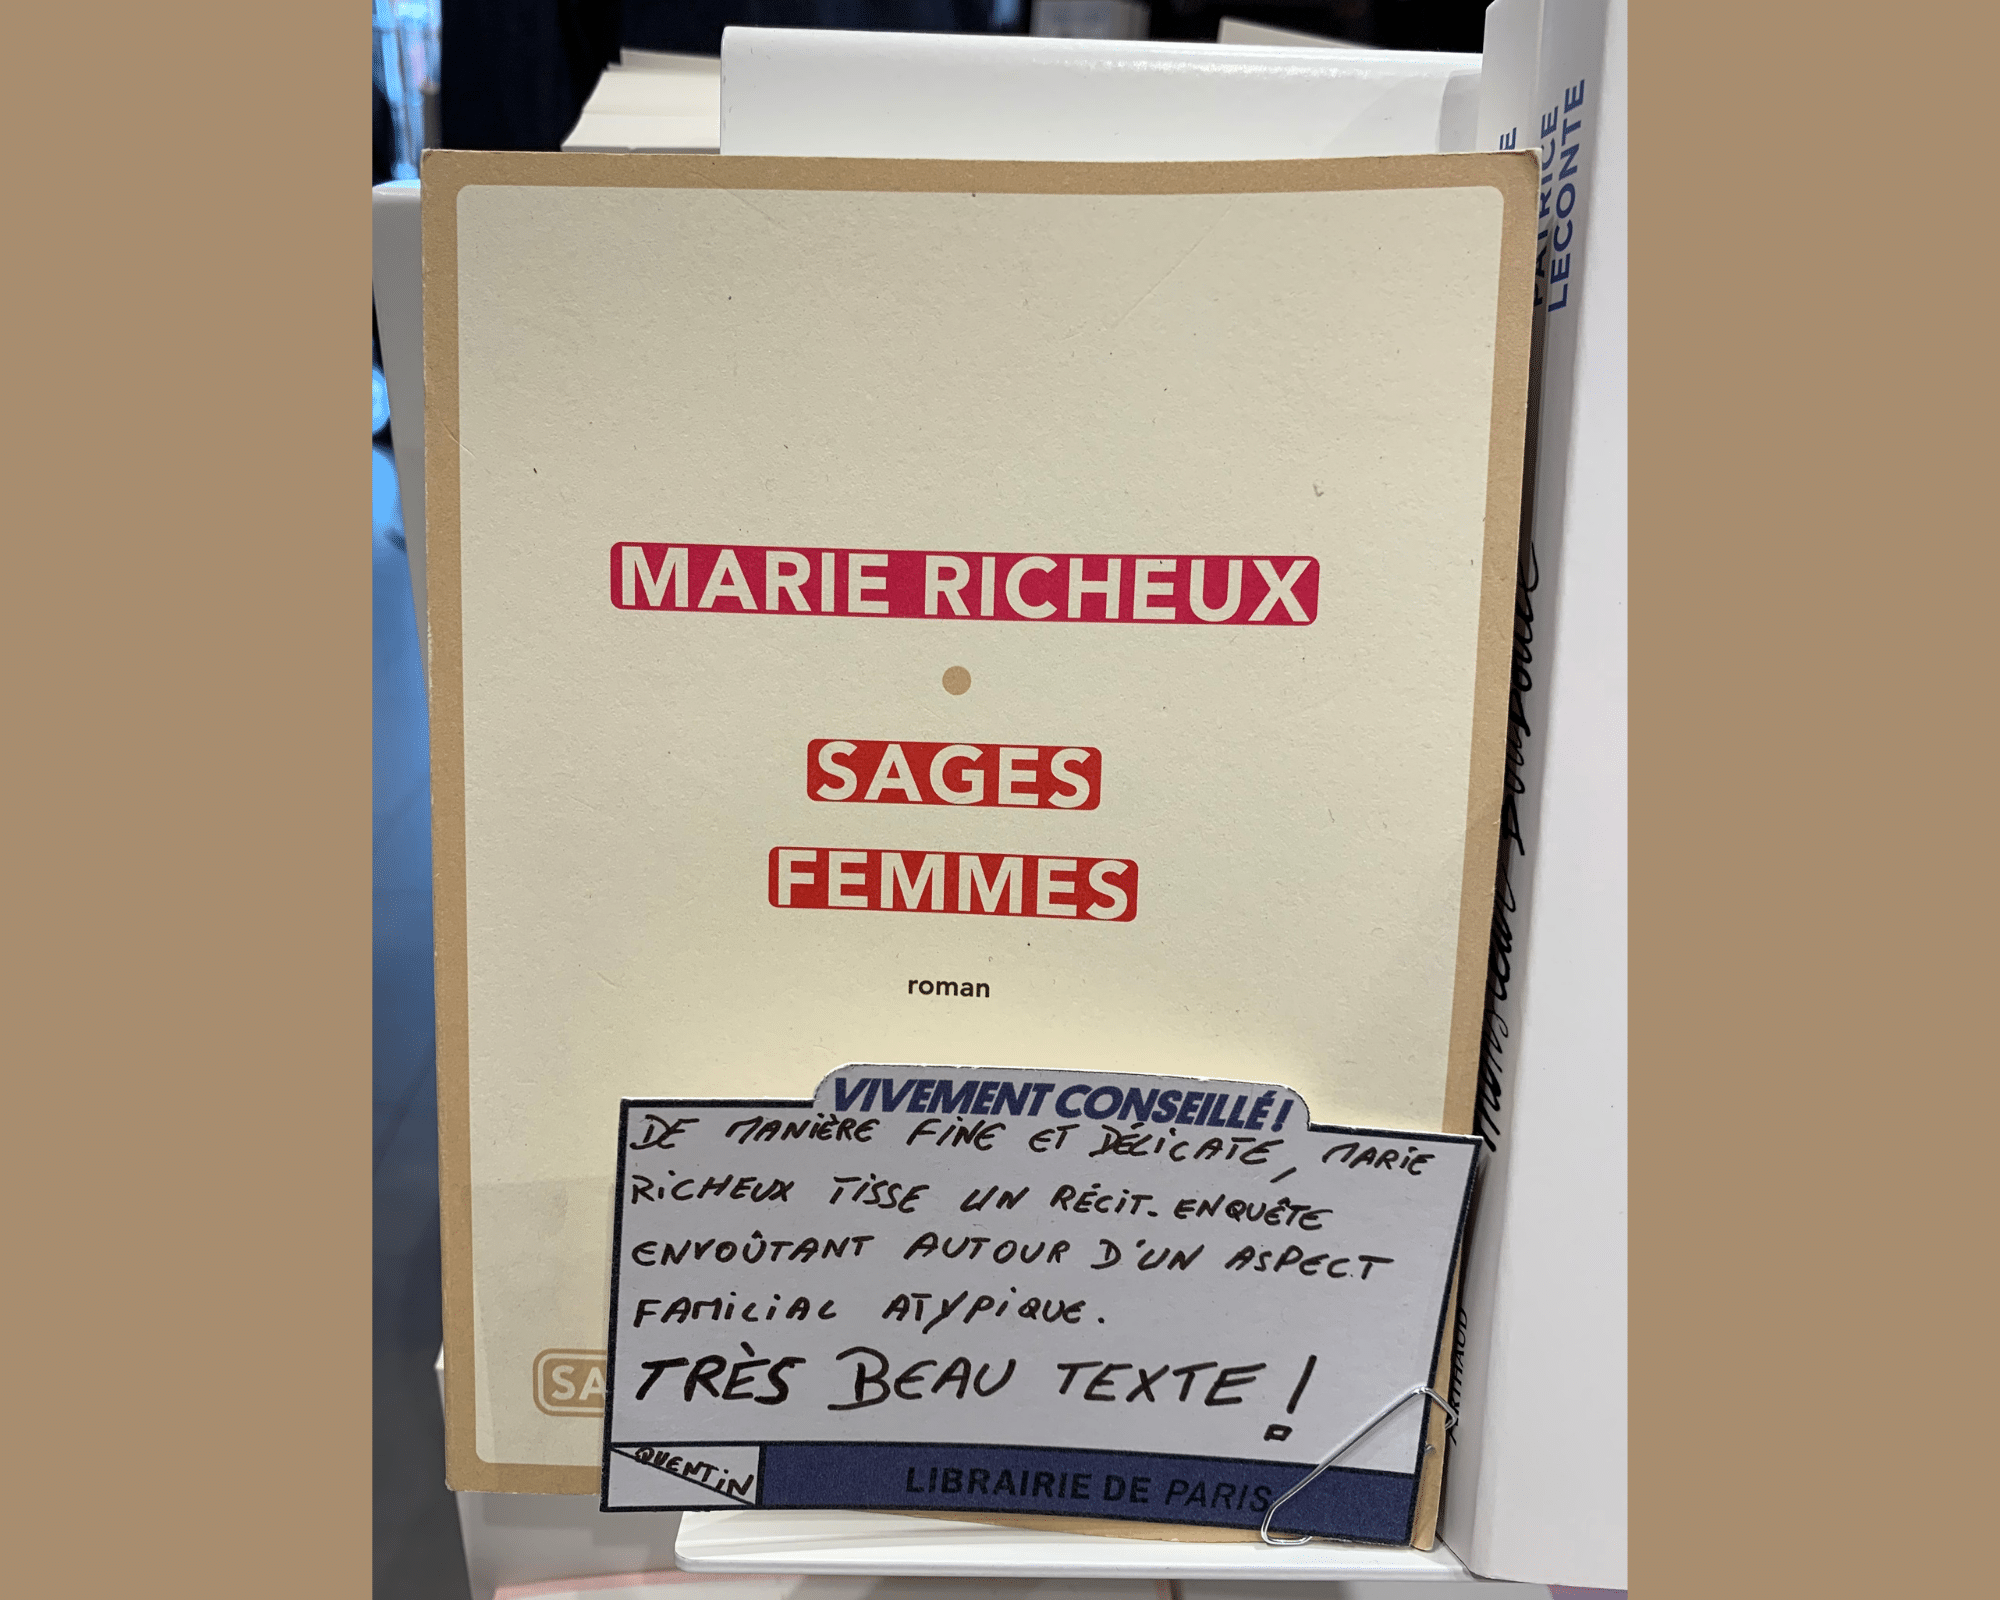 MARIE RICHEUX
SAGES
FEMMES
roman
VIVEMENT CONSEILLÉ !
DE MANIÈRE FINE ET DÉLICATE, MARIE
RICHEUX TISSE UN RÉCIT-ENQUÊTE
ENVOÛTANT AUTOUR D'UN ASPECT
FAMILIAL ATYPIQUE.
TRÈS BEAU TEXTE !
SA
QUENTIN
LIBRAIRIE DE PARIS
PATRICE
LECONTE